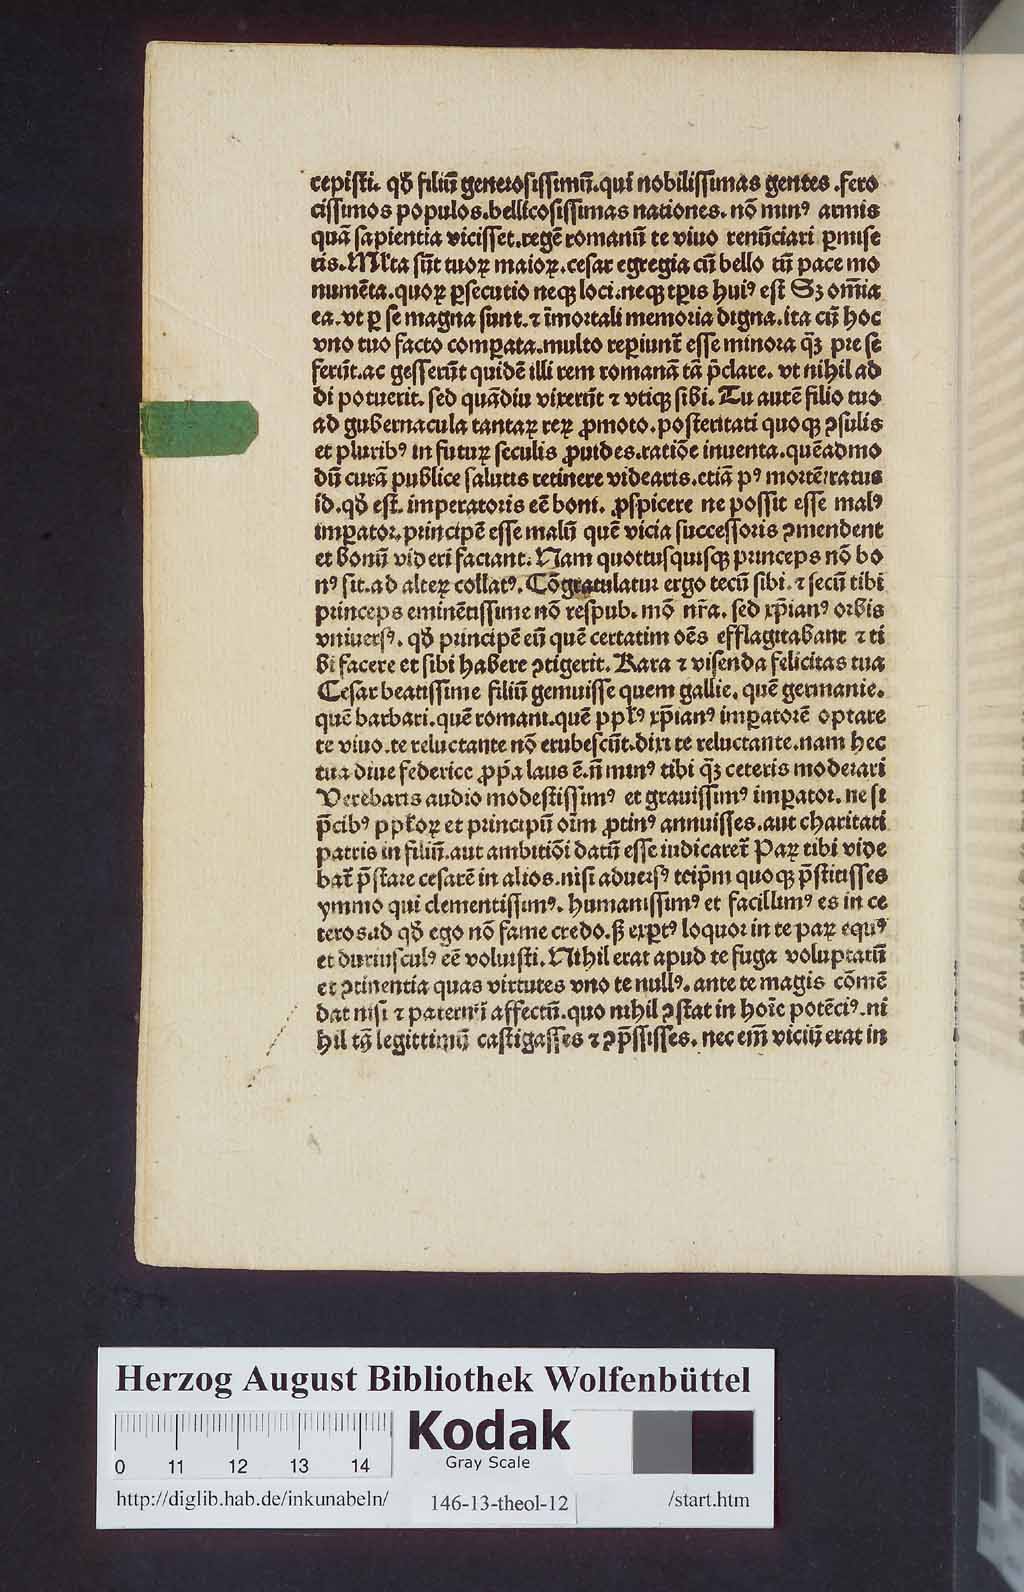 cepisti. qđ filiū generosissimū.qui nobilissimas gentes .fero
cissimos populos.bellicosissimas nationes. nō minꝰ armis
quā sapientia vicisset.regē romanū te viuo renūciari ꝑmise
ris.Ml'ta sūt tuoꝝ maioꝝ.cesar egregia cū bello tū pace mo
numēta.quoꝝ ꝑsecutio neqꝫ loci.neqꝫ tꝑis huiꝰ est Sꝫ om̄ia
ea.vt ꝑ se magna sunt.⁊ īmortali memoria digna.ita cū hoc
vno tuo facto comꝑata.multo reꝑiunt̄ esse minora q̄ꝫ pre se
ferūt.ac gesserūt quidē illi rem romanā tā p̄clare. vt nihil ad
di potuerit. sed quādiu vixerūt ⁊ vtiqꝫ sibi. Tu autē filio tuo
ad gubernacula tantaꝝ reꝝ ꝓmoto.posteritati quoqꝫ ꝯsulis
et pluribꝰ in futuꝝ seculis ꝓuides.ratiōe inuenta.quēadmo
dū curā publice salutis retinere videaris.etiā pꝰ mortē:ratus
id.qđ est. imperatoris eē boni. ꝓspicere ne possit esse malꝰ
imꝑator.principē esse malū quē vicia successoris ꝯmendent
et bonū videri faciant. Nam quottusquisqꝫ princeps nō bo
nꝰ sit.ad alteꝝ collatꝰ. Cōgratulatur ergo tecū sibi.⁊ secū tibi
princeps eminētissime nō respub. mō nr̄a. sed xp̄ianꝰ orbis
vniuersꝰ. qđ principē eū quē certatim oēs efflagitabant ⁊ ti
bi facere et sibi habere ꝯtigerit. Rara ⁊ visenda felicitas tua
Cesar beatissime filiū genuisse quem gallie. quē germanie.
quē barbari.quē romani.quē ppl'ꝰ xp̄ianꝰ imꝑatorē optare
te viuo.te reluctante nō erubescūt.dixi te reluctante.nam hec
tua diue federice ꝓp̄a laus ē.n̄ minꝰ tibi q̄ꝫ ceteris moderari
Verebaris audio modestissimꝰ et grauissimꝰ imꝑator. ne si
p̄cibꝰ ppl'oꝝ et principū oīm ꝓtinꝰ annuisses.aut charitati
patris in filiū.aut ambitiōi datū esse iudicaret̄ Paꝝ tibi vide
bat̄ p̄stare cesarē in alios.nisi aduersꝰ teip̄m quoqꝫ p̄stitisses
ymmo qui clementissimꝰ. humanissimꝰ et facillimꝰ es in ce
teros ad qđ ego nō fame credo.ß exꝑtꝰ loquor in te paꝝ equꝰ
et duriusculꝰ eē voluisti. Nihil erat apud te fuga voluptatū
et ꝯtinentia quas virtutes vno te nullꝰ. ante te magis cōmē
dat nisi ⁊ paternū affectū.quo nihil ꝯstat in hoīe potēciꝰ.ni
hil tā legittimū castigasses ⁊ ꝯp̄ssisses. nec em̄ viciū erat in
Herzog August Bibliothek Wolfenbüttel
0 11 12 13 14
Kodak
Gray Scale
http://diglib.hab.de/inkunabeln/ 146-13-theol-12 /start.htm